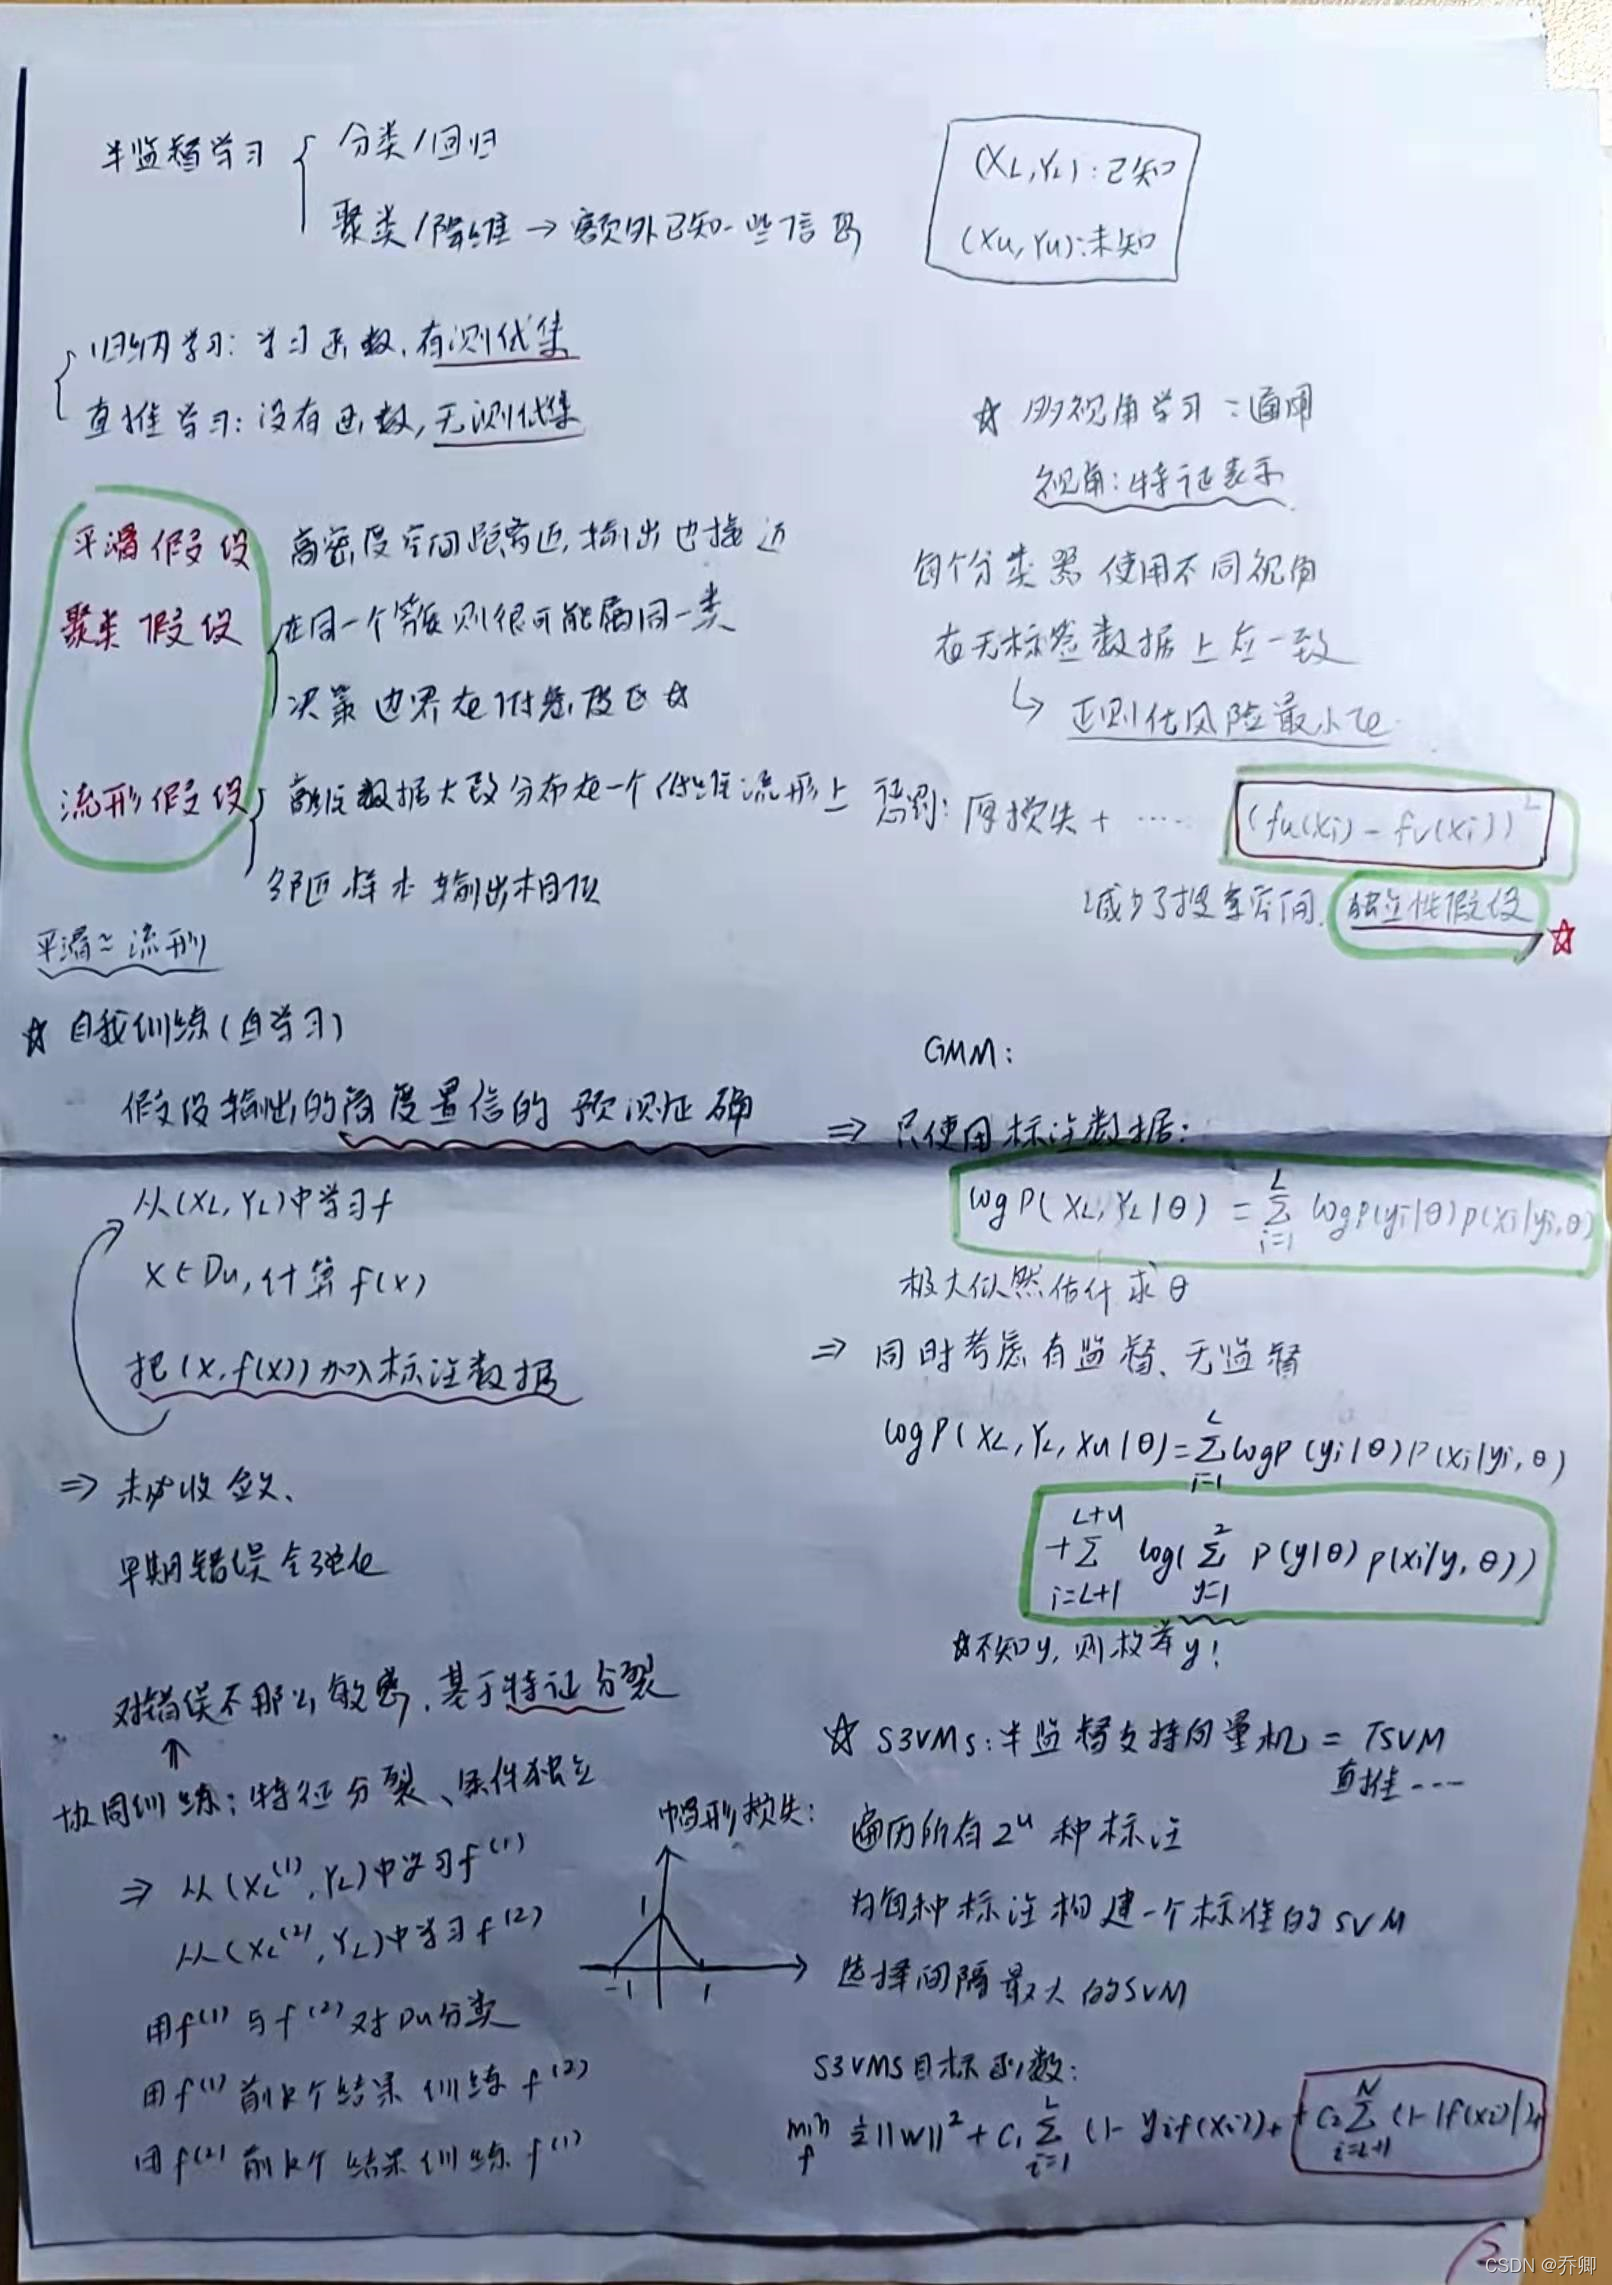 半监督学习 { 分类/回归
聚类/降维 → 额外已知一些信息
(XL,YL):已知
(Xu,Yu):未知
归纳学习:学习函数,有测试集
直推学习:没有函数,无测试集
平滑假设 高密度空间距离近,输出也接近
聚类假设 { 在同一个簇则很可能属同一类
决策边界在低密度区☆
流形假设 { 高维数据大致分布在一个低维流形上
邻近样本输出相似
平滑≈流形
☆ 自我训练(自学习)
假设输出的高度置信的预测正确
从(XL,YL)中学习f
x∈Du,计算f(x)
把(x,f(x))加入标注数据
⇒ 未必收敛、
早期错误会强化
对错误不那么敏感,基于特征分裂
⇑
协同训练:特征分裂、条件独立
⇒ 从(XL^(1),YL)中学习f^(1)
从(XL^(2),YL)中学习f^(2)
用f^(1)与f^(2)对Du分类
用f^(1)前k个结果训练f^(2)
用f^(2)前k个结果训练f^(1)
☆ 多视角学习:通用
视角:特征表示
每个分类器使用不同视角
在无标签数据上应一致
↳ 正则化风险最小化
惩罚:原损失+ ····· (fu(xi)-fv(xi))²
减少了搜索空间. 独立性假设 ☆
GMM:
⇒ 只使用标注数据:
log P(XL,YL|θ) = Σ_{i=1}^{L} log P(yi|θ)p(xi|yi,θ)
极大似然估计求θ
⇒ 同时考虑有监督、无监督
log P(XL,YL,Xu|θ)=Σ_{i=1}^{L} log P(yi|θ)P(xi|yi,θ)
+Σ_{i=L+1}^{L+u} log(Σ_{y=1}^{2} P(y|θ)p(xi|y,θ))
☆不知y,则枚举y!
☆ S3VMs:半监督支持向量机 = TSVM
直推----
遍历所有2^u种标注
为每种标注构建一个标准的SVM
选择间隔最大的SVM
帽形损失:
1
-1 1
S3VMS目标函数:
min_f ½||W||²+C₁Σ_{i=1}^{L}(1-yif(xi))₊+C₂Σ_{i=L+1}^{N}(1-|f(xi)|)₊
2
CSDN @乔卿